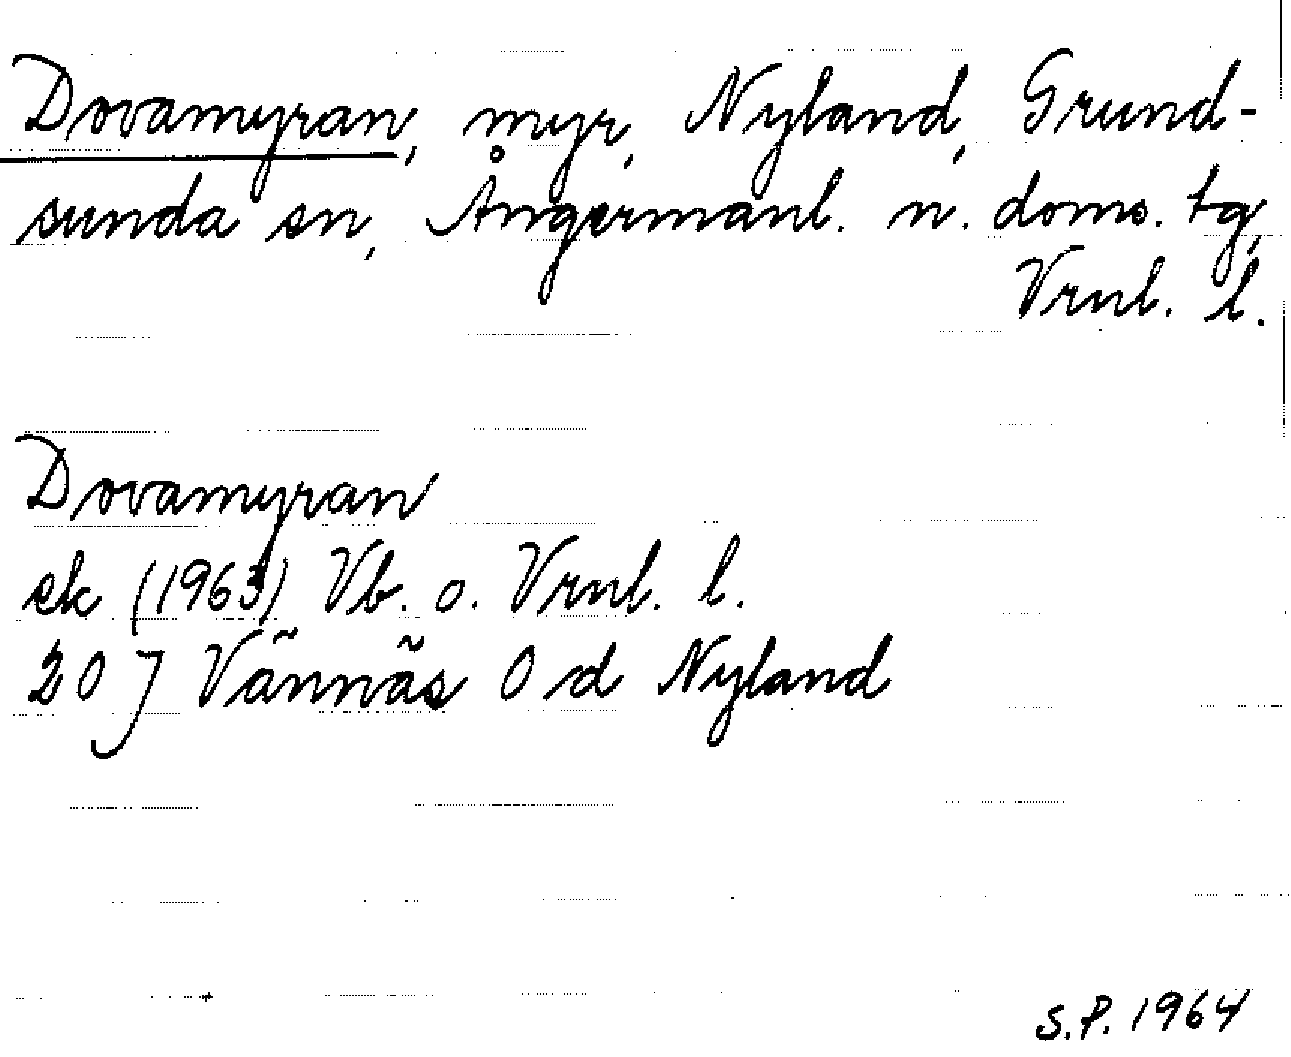 Dovamyran, myr, Nyland, Grund-
sunda sn, Ångermanl. n. doms. tg,
Vrnl. l.
Dovamyran
ek (1963) Vb. o. Vrnl. l.
20 J Vännäs 0 d Nyland
S.P. 1964